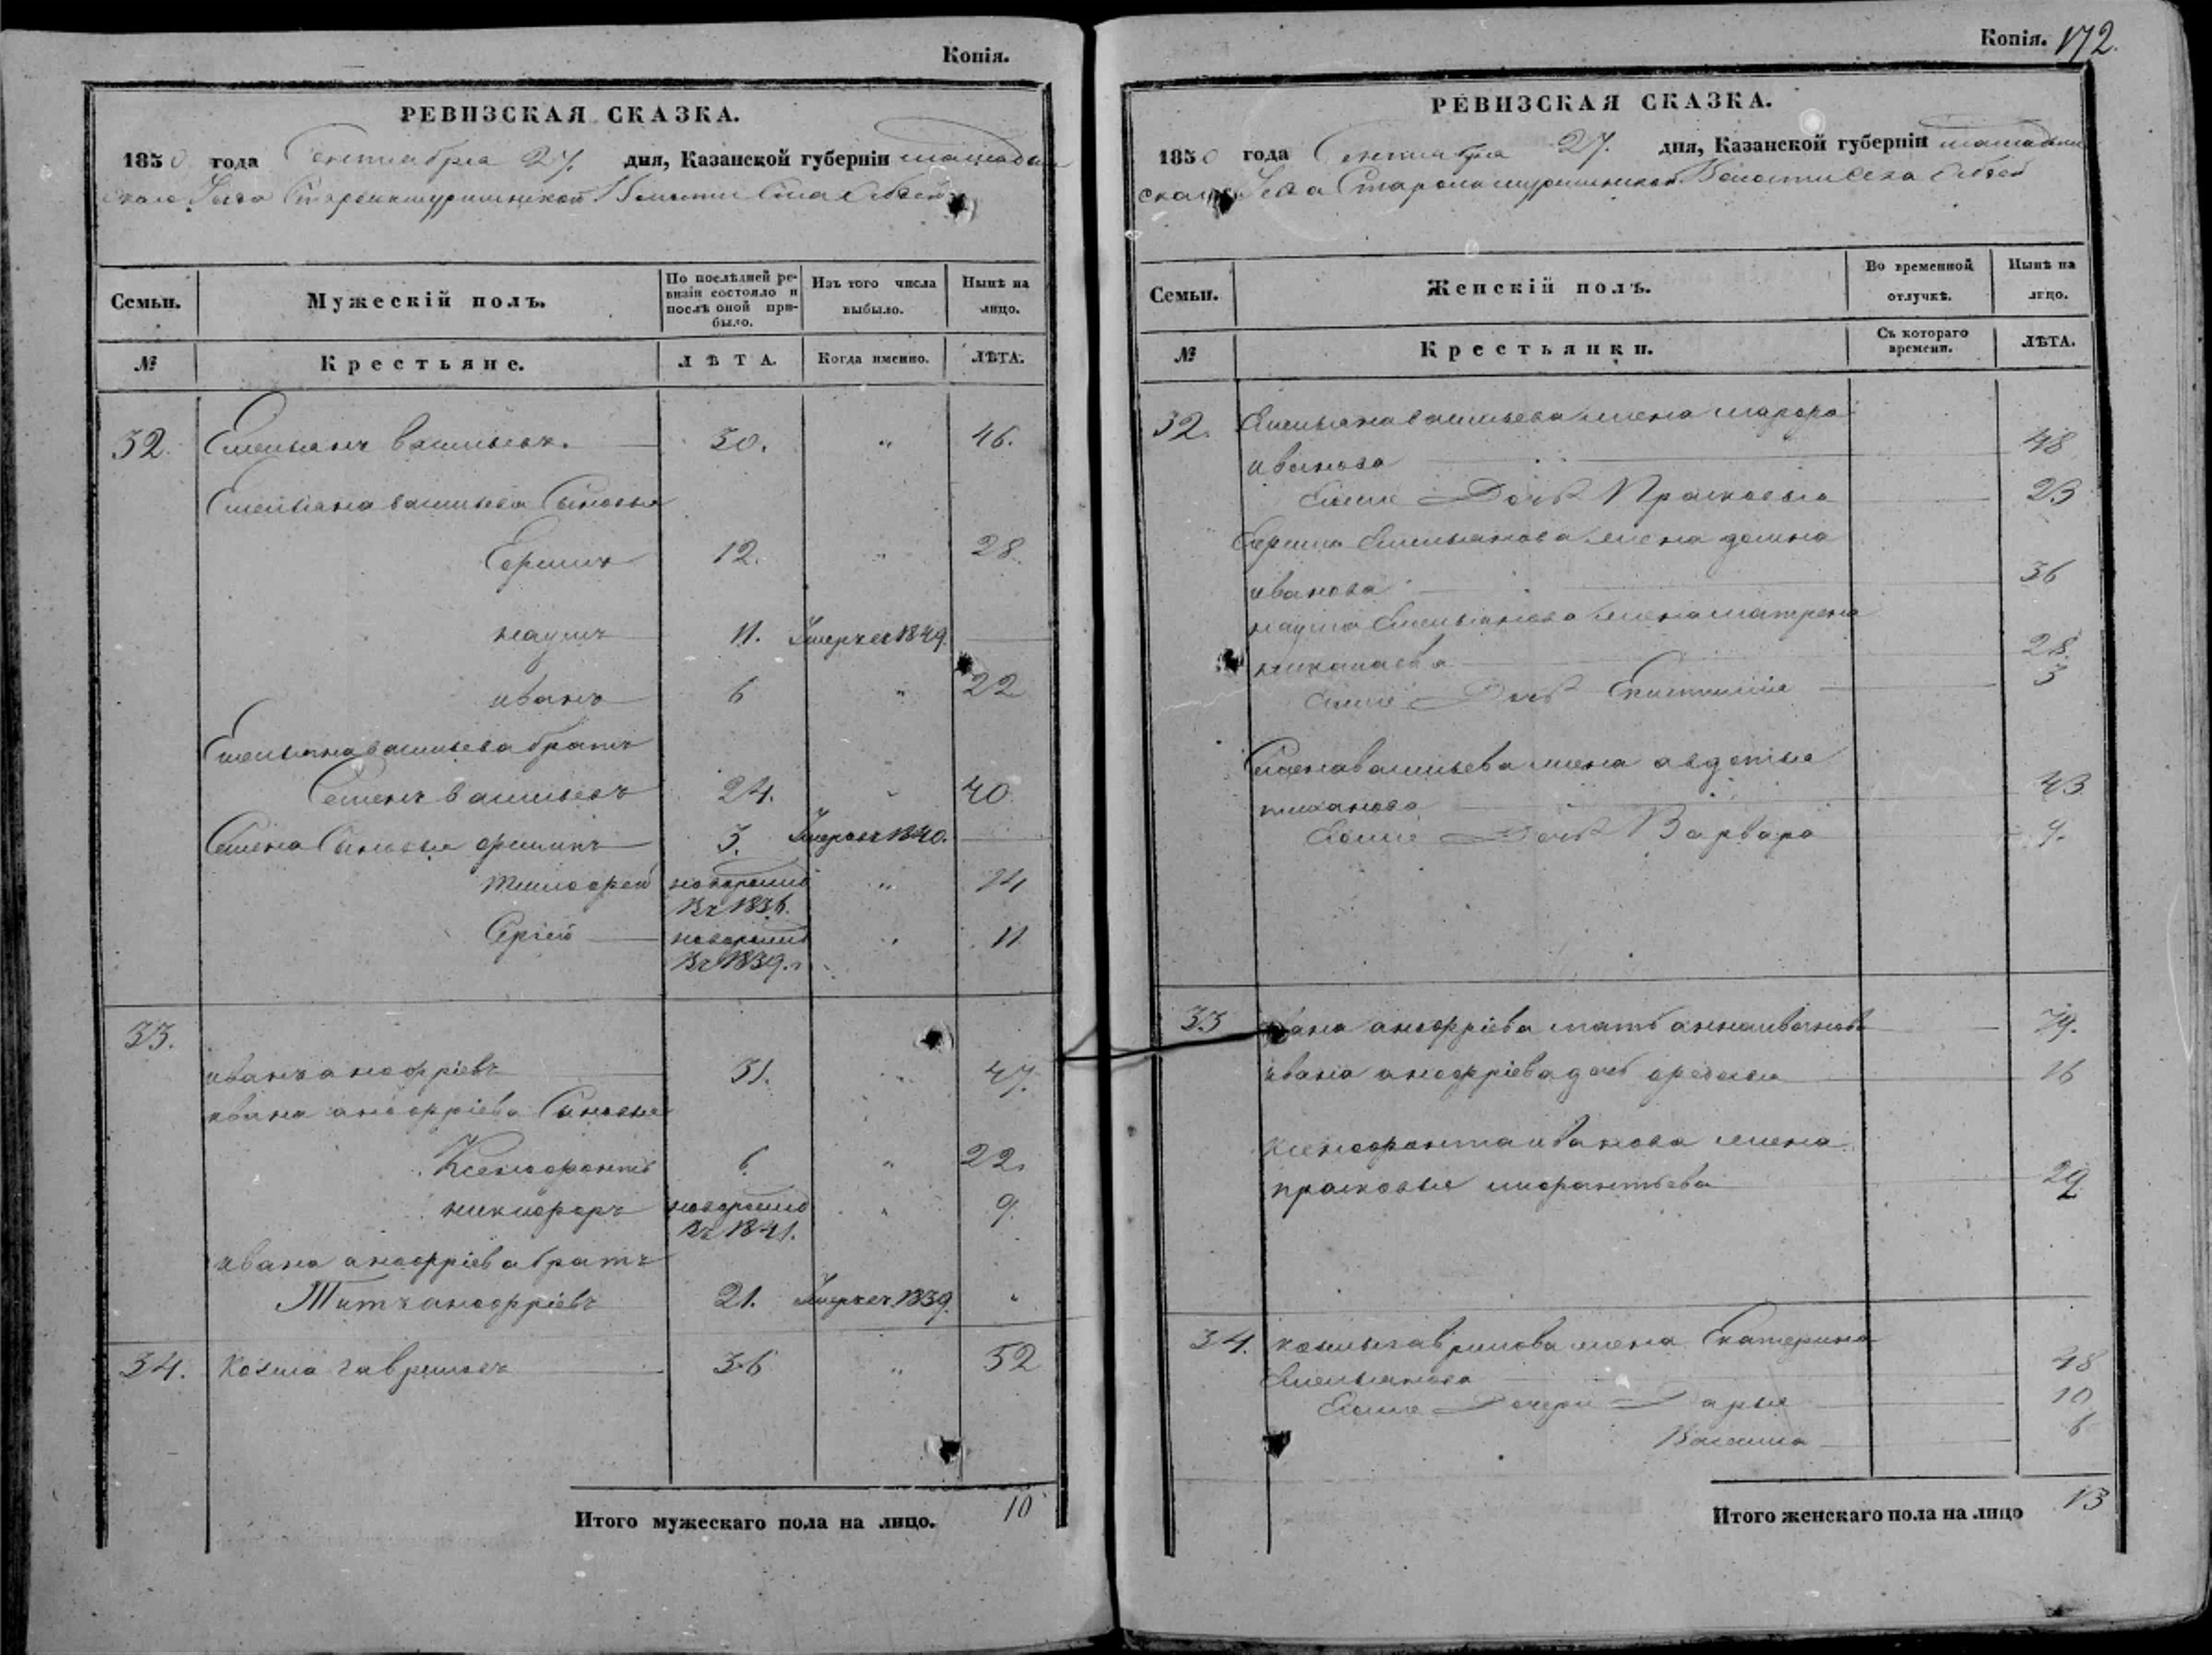 Копія.
РЕВИЗСКАЯ СКАЗКА.
1850 года Сентября 27. дня, Казанской губерніи мамадыш
скаго Уезда Волости Села
Семьи. Мужескій полъ. По послѣдней ре-визіи состояло и послѣ оной при-было. Изъ того числа выбыло. Нынѣ на лицо.
№ Крестьяне. ЛѢТА. Когда именно. ЛѢТА.
32. Емельянъ васильевъ. 30. " 46.
Емельяна васильева Сыновья
Ефимъ 12. " 28.
наумъ 11. Умеръ въ 1849.
иванъ 6 " 22
Емельяна васильева братъ
Семенъ васильевъ 24. " 40.
Семена Сыновья 3. Умеръ въ 1840.
Тимофей новорожд " 14
въ 1836.
Сергій новорожд " 11
въ 1839.
33.
иванъ анофріевъ 31. " 47.
ивана анофріева Сыновья
Ксенофонтъ 6. " 22.
никифоръ новорожд " 9.
въ 1841.
ивана анофріева братъ
Титъ анофріевъ 21. Умеръ въ 1839. "
34. козма гавриловъ 36 " 52
Итого мужескаго пола на лицо. 10
Копія. 172.
РЕВИЗСКАЯ СКАЗКА.
1850 года Сентября 27. дня, Казанской губерніи мамадыш
скаго Уезда Волости Села
Семьи. Женскій полъ. Во временной отлучкѣ. Нынѣ на лицо.
№ Крестьянки. Съ котораго времени. ЛѢТА.
32. Емельяна васильева жена
иванова 48
Ево же Дочь Прасковья 23
Ефима Емельянова жена домна
иванова 36
наума Емельянова жена матрена
николаева 28.
Ево же Дочь 3
Семена васильева жена авдотья
43
Ево же Дочь Варвара
33 ивана анофріева мать анна иванова 79.
ивана анофріева дочь 16
ксенофонта иванова жена
прасковья 29
34. козмы гаврилова жена Екатерина
Емельянова 48
Ево же Дочери Дарья 10
6
Итого женскаго пола на лицо 13